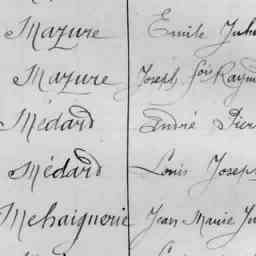 Mazure Emile Jule
Mazure Joseph fois Raym
Médard André Pier
Médard Louis Joseph
Mehaignerie Jean Marie